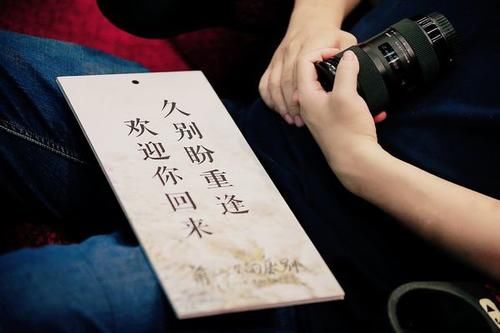 久别盼重逢
欢迎你回来